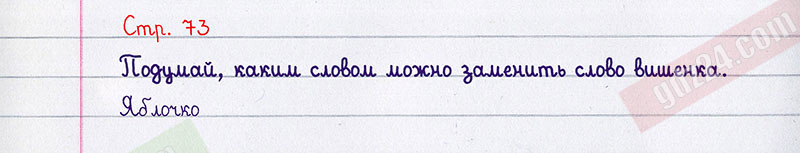 Стр. 73
Подумай, каким словом можно заменить слово вишенка.
Яблочко
gdz24.com